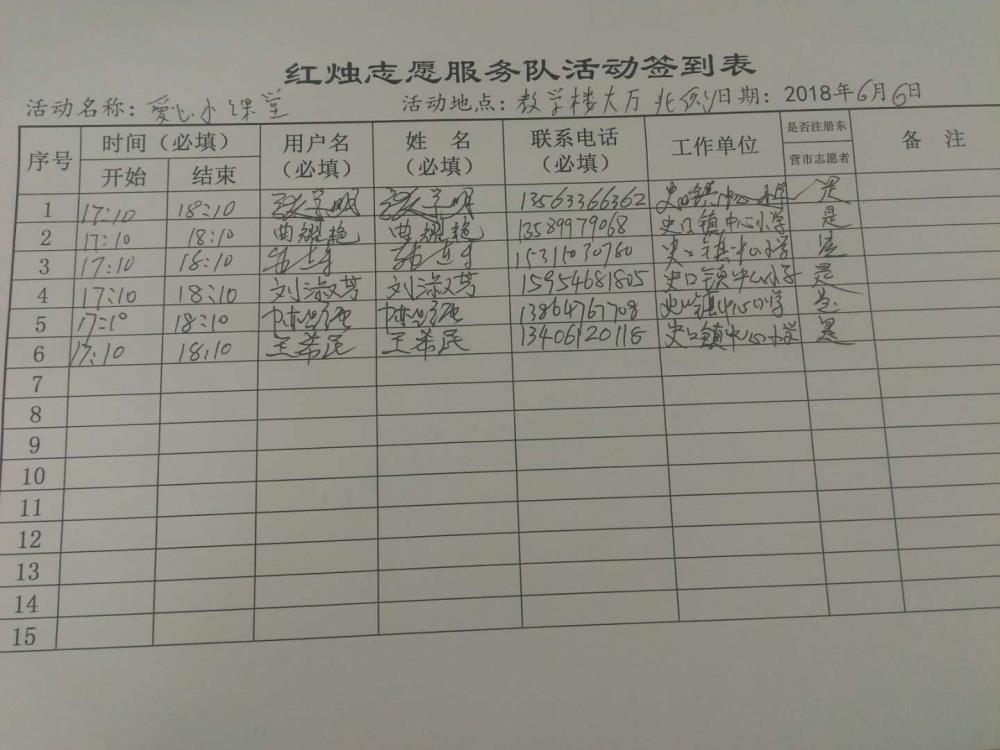 红烛志愿服务队活动签到表
活动名称：爱心小课堂 活动地点：教学楼大厅 日期：2018年6月6日
序号 时间（必填） 用户名（必填） 姓名（必填） 联系电话（必填） 工作单位 是否注册东营市志愿者 备注
开始 结束
1 17:10 18:10 13563366362 史口镇中心小学 是
2 17:10 18:10 曲耀艳 曲耀艳 13589979068 史口镇中心小学 是
3 17:10 18:10 15311030780 史口镇中心小学 是
4 17:10 18:10 刘淑芬 刘淑芬 15954681805 史口镇中心小学 是
5 17:10 18:10 13864767708 史口镇中心小学 是
6 17:10 18:10 王希民 王希民 13406120118 史口镇中心小学 是
7
8
9
10
11
12
13
14
15